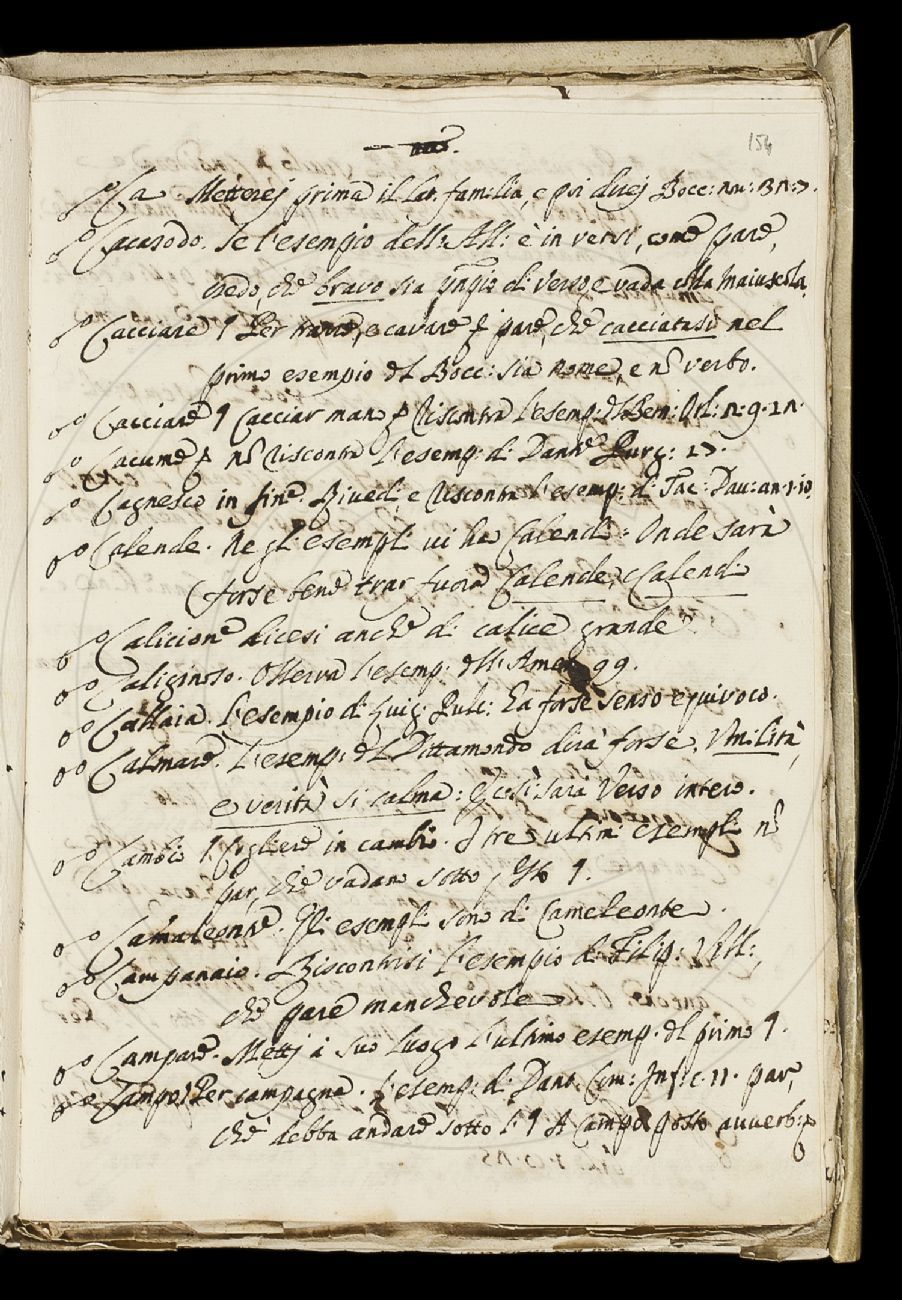 154
Ca. Mettere prima il lat. familia, e poi Bocc:
Cacasodo. Se l'esempio dell'All: è in versi, come pare,
credo, che bravo sia di verso, e vada colla maiuscola.
Cacciare ¶ Per trarre, e cavare pare, che cacciatasi nel
primo esempio del Bocc: sia nome, e nõ verbo.
Cacciare ¶ Cacciar mano Riscontra l'esemp: del Bern: Orl:
Cacume nõ riscontra l'esemp: di Dante Purg: 17.
Cagnesco in fine. Rivedi, e riscontra l'esemp: di Tac: Dav: an:
Calende. Negli esempli vi ha Calendi: Onde sarà
forse bene trar fuora Calende, e Calendi
Calicione dicesi anche di calice grande
Caliginoso. Osserva l'esemp: dell'Amet 99.
Callaia. L'esempio di Luig: Pulc: Ha forse senso equivoco.
Calmare. L'esemp: del Dittamondo dirà forse, Umilità,
e verità si calma: E così sarà Verso intero.
Cambio ¶ Cogliere in cambio. I tre ultimi esempli nõ
par, che vadano sotto ¶.
Camaleonte. Gli esempli sono di Cameleonte.
Campanaio. Riscontrisi l'esempio di Filip: Vill:,
che pare manchevole
Campare. Metti a suo luogo l'ultimo esemp: del primo ¶.
Campo ¶ Per campagna. L'esemp: di Dant. Com: Inf: c. 11. par,
che debba andare sotto l'¶ A Campo posto avverb: